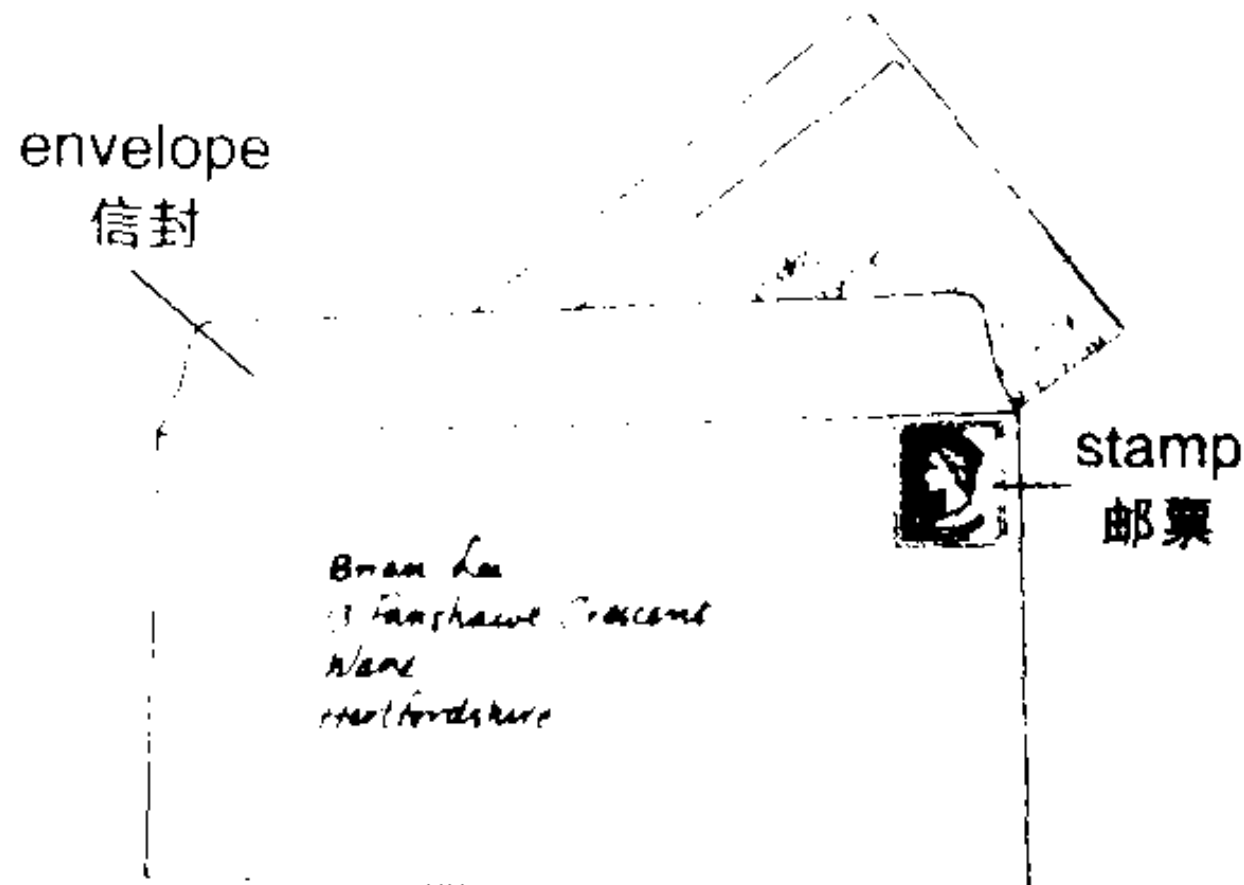 envelope
信封
stamp
邮票
Brian Lee
Fanshawe Crescent
Ware
Hertfordshire